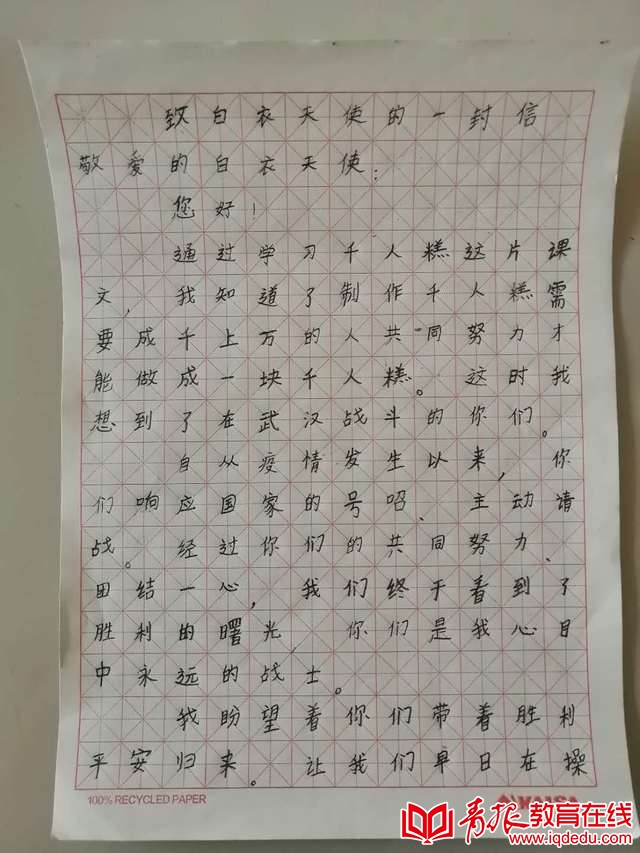 致白衣天使的一封信
敬爱的白衣天使:
您好!
通过学习千人糕这片课
文,我知道了制作千人糕需
要成千上万的人共同努力才
能做成一块千人糕。这时我
想到了在武汉战斗的你们。
自从疫情发生以来,你
们响应国家的号召、主动请
战。经过你们的共同努力、
田结一心,我们终于看到了
胜利的曙光,你们是我心目
中永远的战士。
我盼望着你们带着胜利
平安归来。让我们早日在操
100% RECYCLED PAPER
青报教育在线
www.iqdedu.com